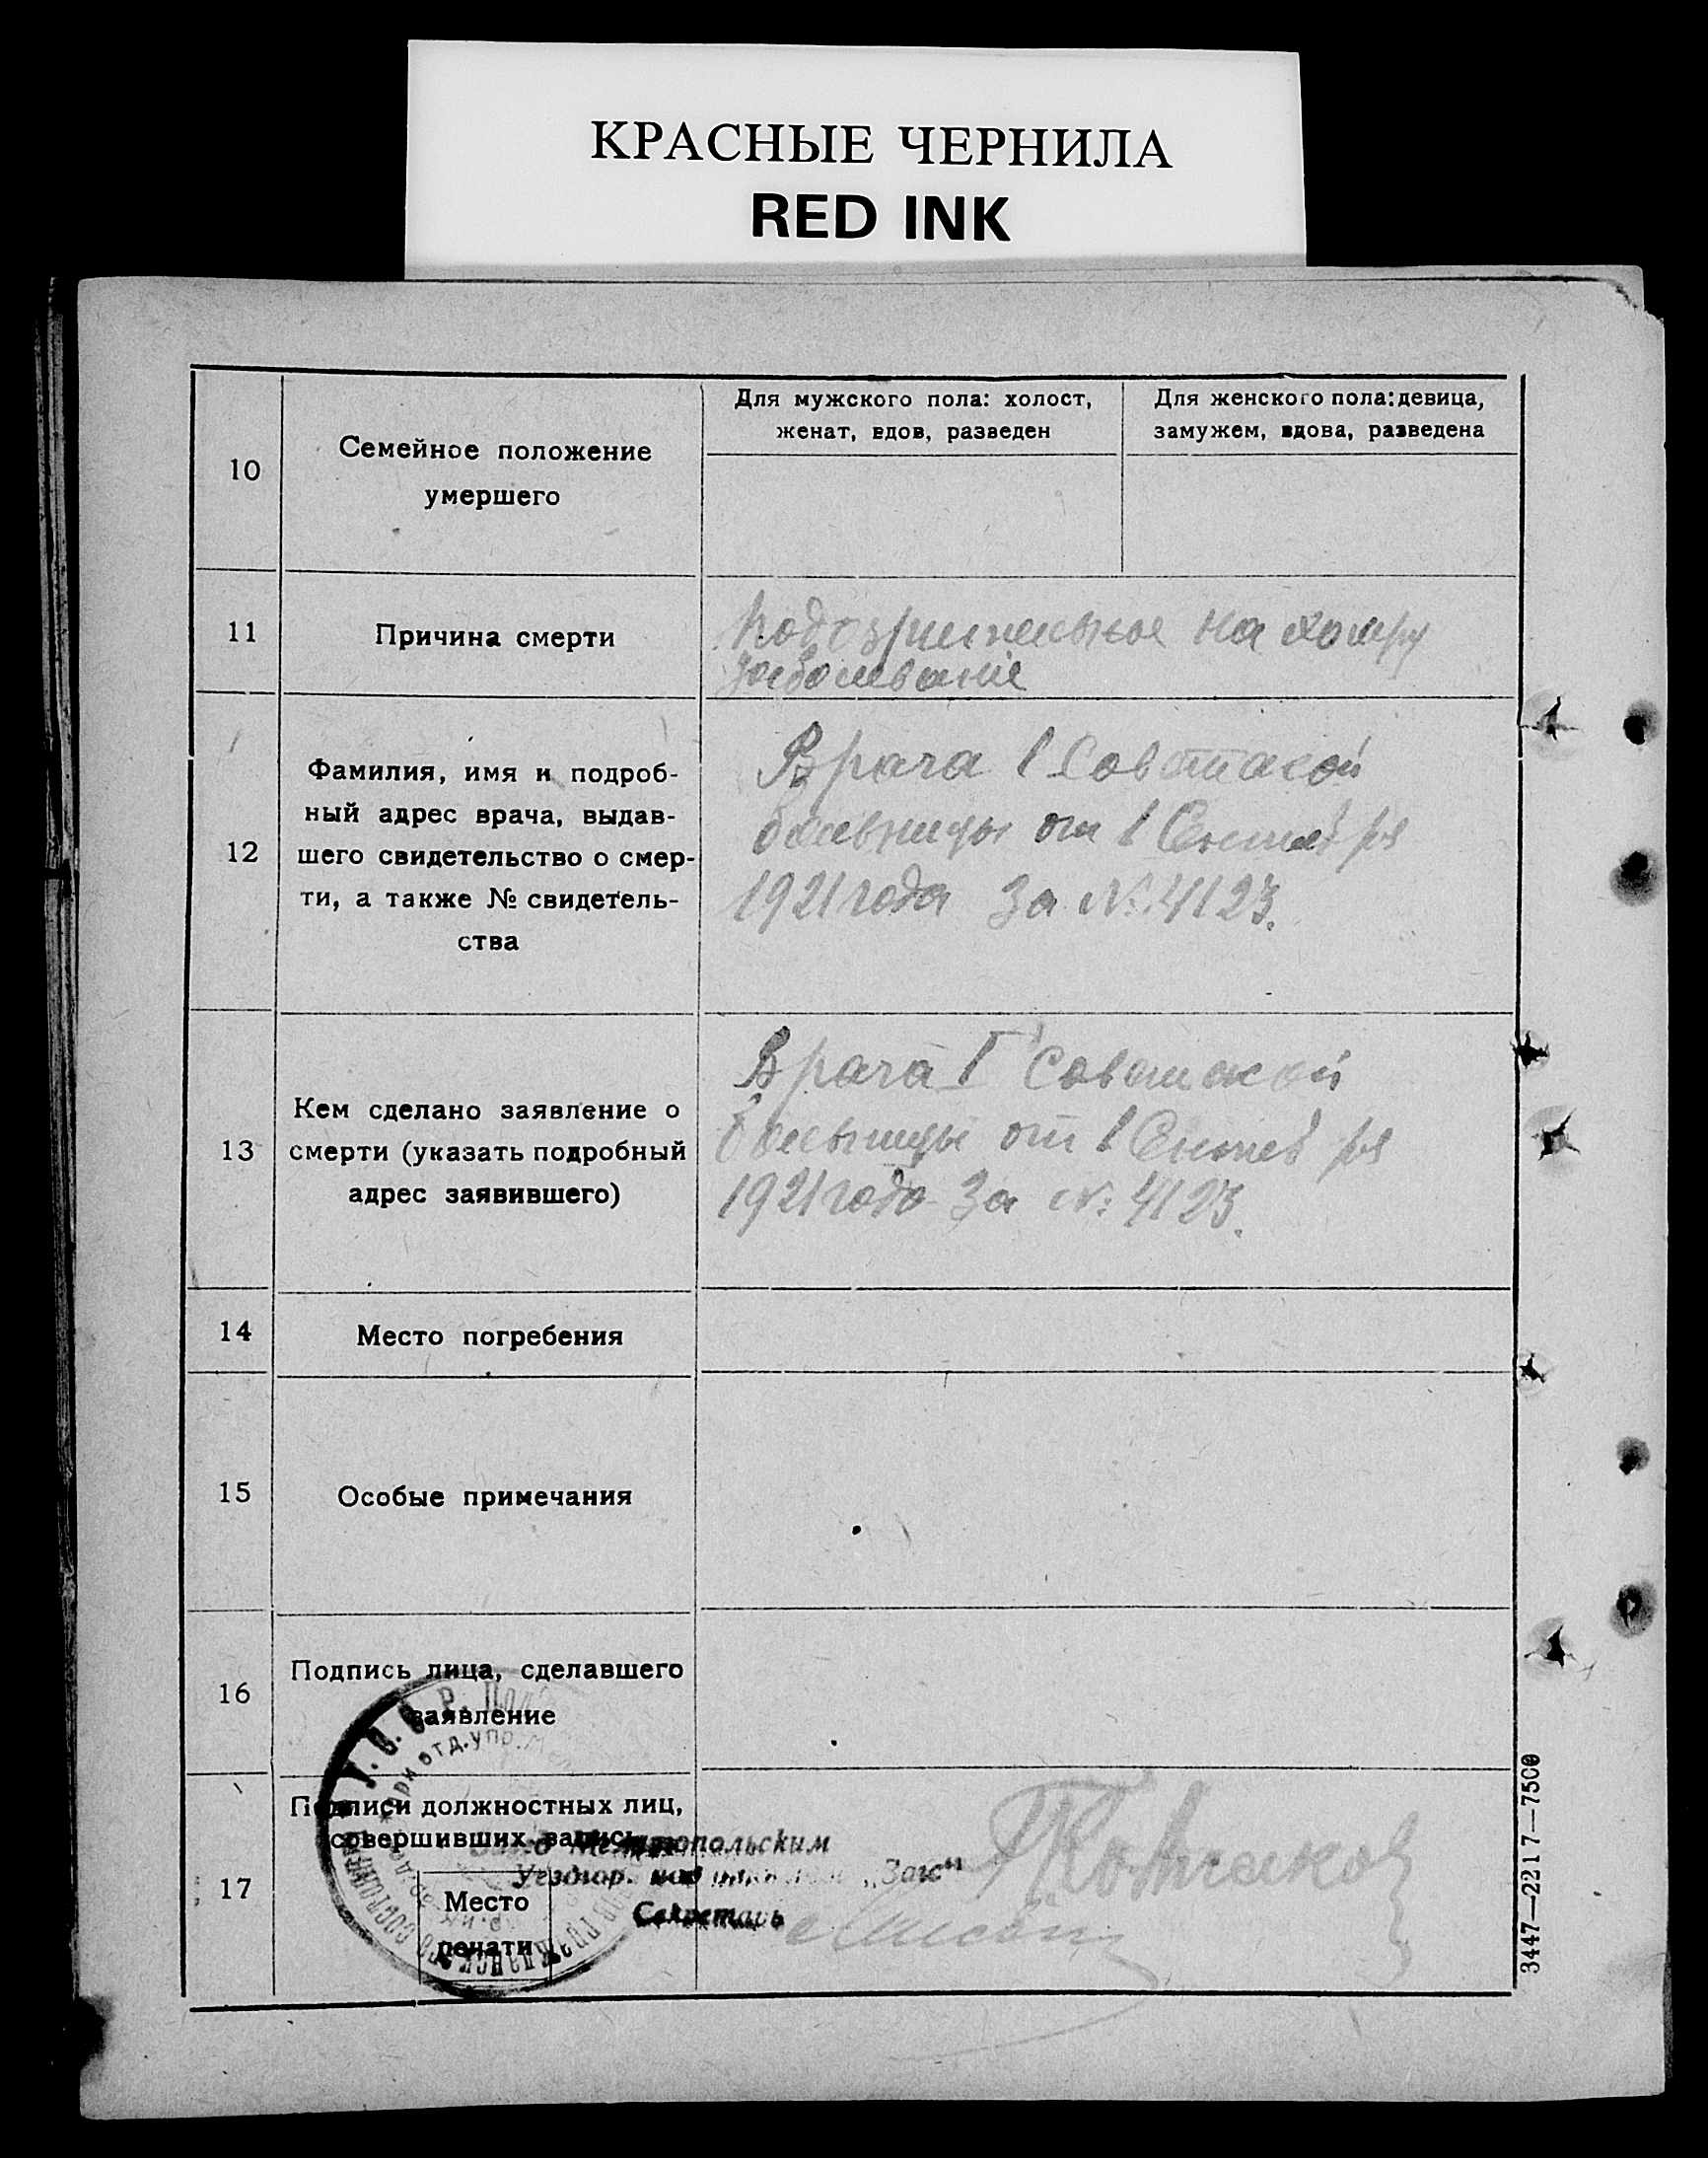 КРАСНЫЕ ЧЕРНИЛА
RED INK
10
Семейное положение
умершего
Для мужского пола: холост,
женат, вдов, разведен
Для женского пола: девица,
замужем, вдова, разведена
11
Причина смерти
Подозрительное на холеру
заболевание
12
Фамилия, имя и подроб-
ный адрес врача, выдав-
шего свидетельство о смер-
ти, а также № свидетель-
ства
Врача 1 Советской
больницы от 1 Сентября
1921 года за №: 4123.
13
Кем сделано заявление о
смерти (указать подробный
адрес заявившего)
Врача I Советской
больницы от 1 Сентября
1921 года за №: 4123.
14
Место погребения
15
Особые примечания
16
Подпись лица, сделавшего
заявление
17
Подписи должностных лиц,
совершивших запись
Место
печати
Мелитопольским
"Загс"
Секретарь
У. С. С. Р.
при отд. упр.
3447—2217—7500